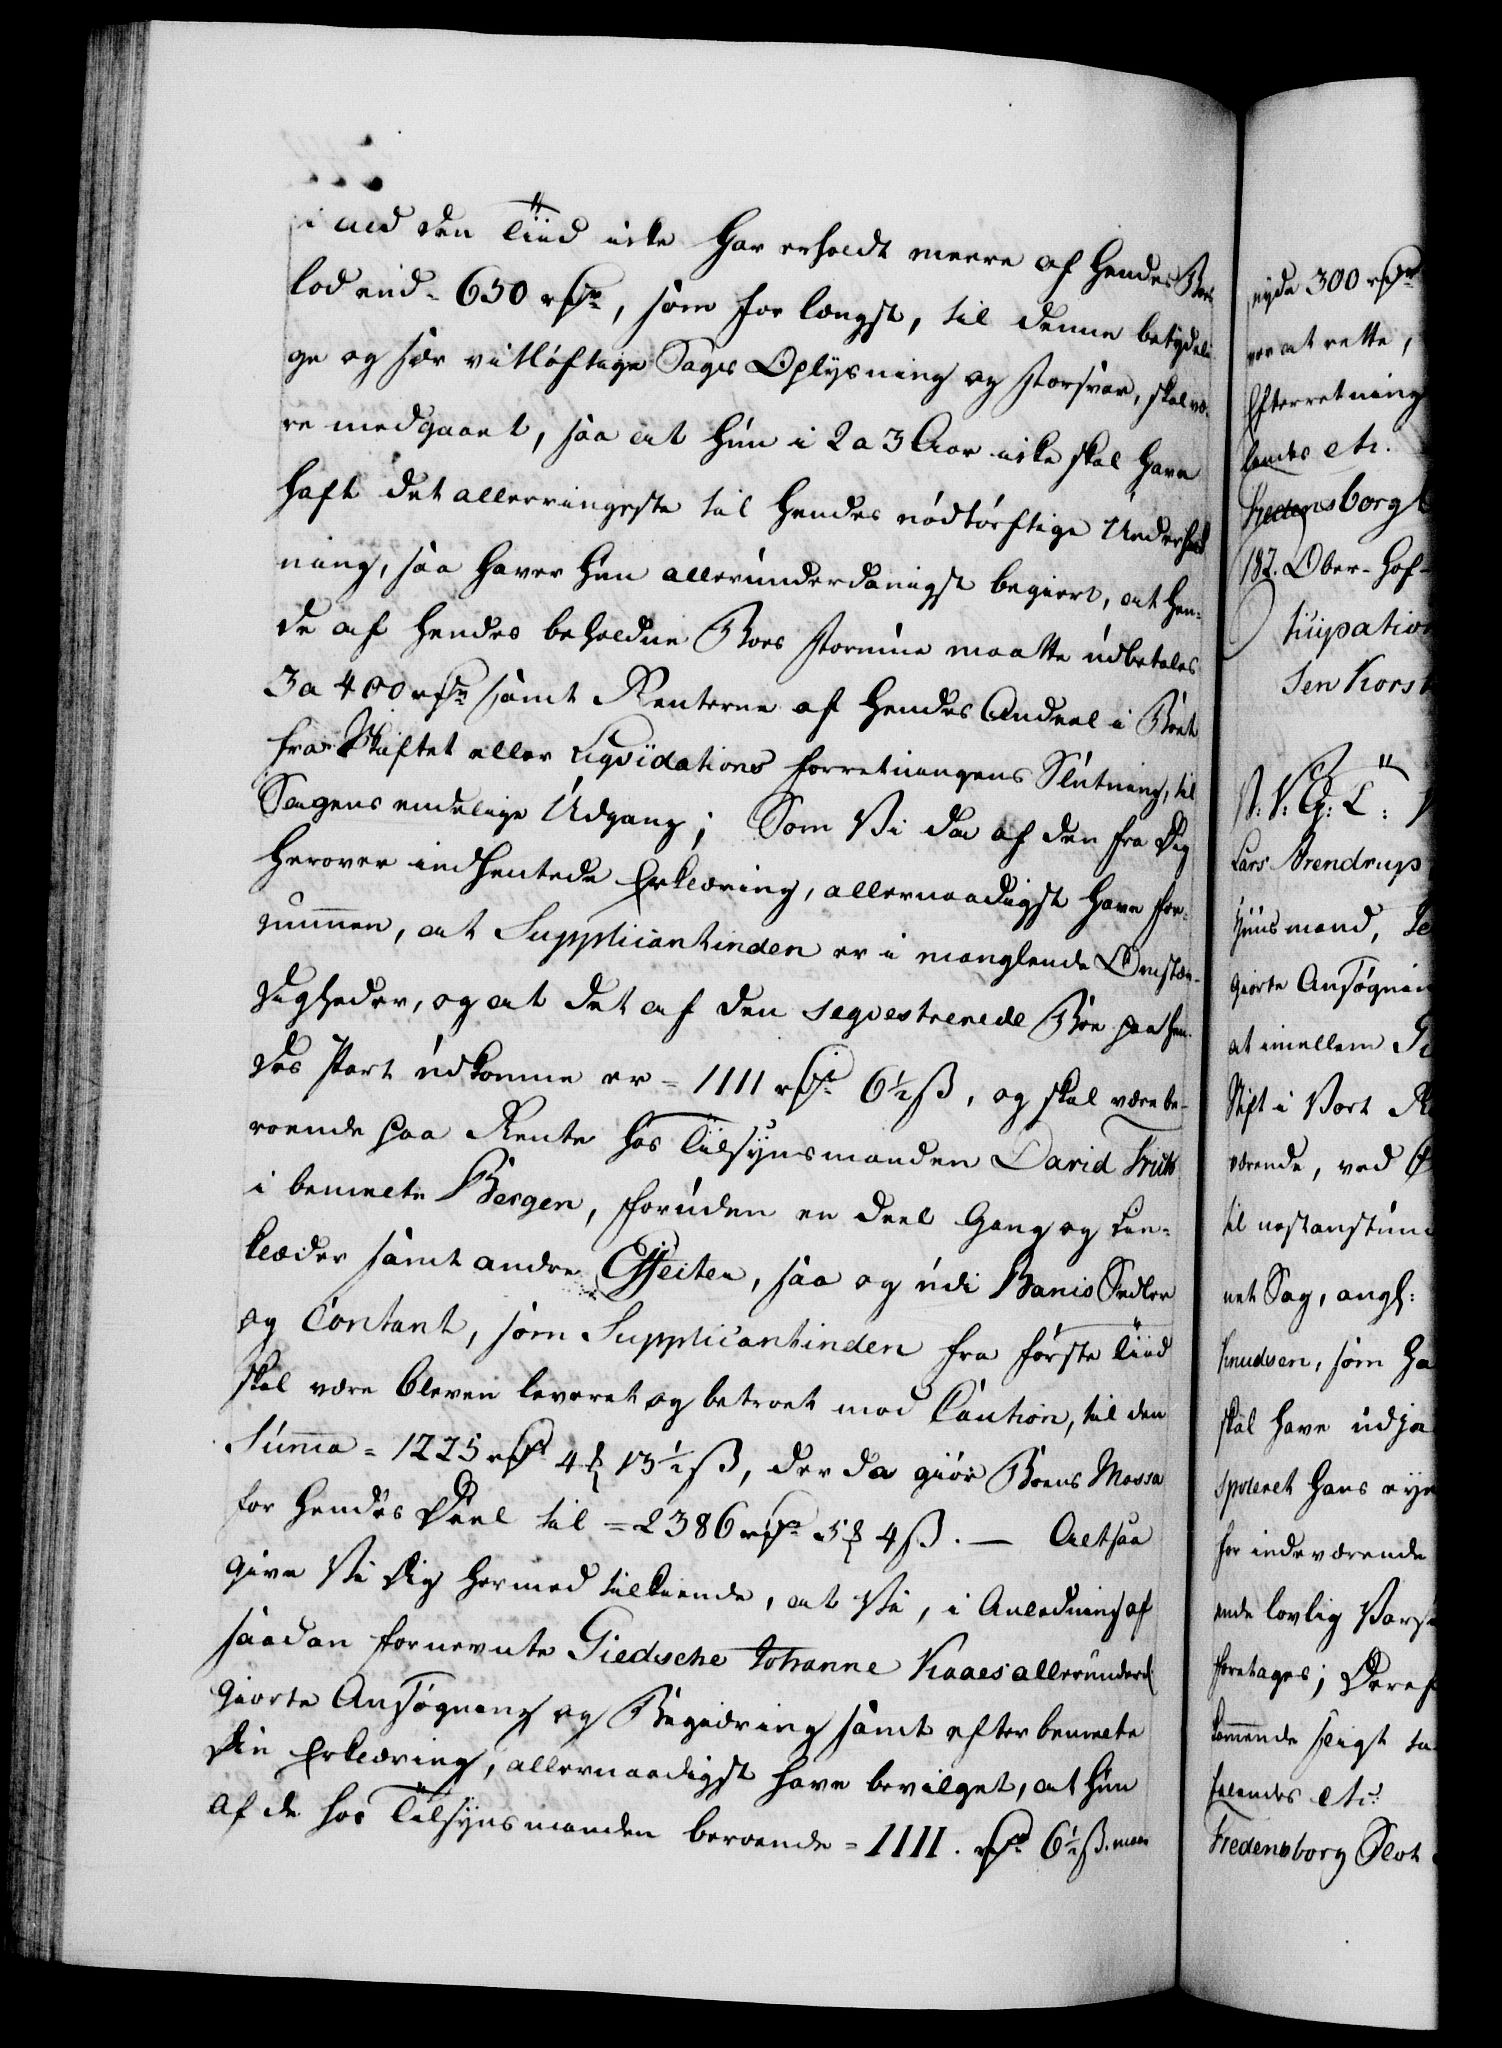 i ald den Tiid icke har erholdt meere af Hendes Boes
lod end = 650 rdr, som for længst, til denne betydeli
ge og saer vitløftige Sags Oplysning og Forsvar, skal væ-
re medgaaet, saa at Hun i 2 a 3 Aar icke skal have
haft det allerringeste til Hendes nødtørftige Underhold
ning, saa haver Hun allerunderdanigst begiert, at Hen-
de af Hendes beholdne Boes Formue maatte udbetales
3 a 400 rdr samt Renterne af Hendes Andeel i Boet
fra Skiftet eller Liqvidations forretningens Slutning, til
Sagens endelige Udgang; Som Vi da af den fra Dig
herover indhentede Erklæring, allernaadigst have for-
nummen, at Supplicantinden er i manglende Omstæn-
digheder, og at det af den seqvestrerede Boe paa Hen-
des Part udkomne er = 1111 rdr 6½ ß, og skal være be-
roende paa Rente hos Tilsynsmanden David Frich
i bemelte Bergen, foruden en deel Gang og Lin-
klæder samt andre Effecter, saa og udi Banco Sedler
og Contant, som Supplicantinden fra første Tiid
skal være bleven leveret og betroet mod Caution, til den
Summa = 1225 rdr 4 ℔ 13½ ß, der da giør Boens Massa
for Hendes Deel til = 2386 rdr 5 ℔ 4 ß. — Altsaa
give Vi Dig hermed tilkiende, at Vi, i Anledning af
saadan fornevnte Giedsche Johanne Kaaes allerunderd:
giorte Ansøgning og Begiæring samt efter bemelte
Din Erklæring, allernaadigst have bevilget, at Hun
af de hos Tilsynsmanden beroende = 1111. rdr 6½ ß. maa
nyde 300 rdr
ver at rette,
Efterretning
lendes etc.
Fredensborg
187. Ober-Hof-
ticipation
sen Kors
Lars Arendrup
Huusmand,
giorte Ansøgnin
at imellem
Stift i Vort
værende, ved
til nestanstun
net Sag, angl:
Knudsen, som ha
skal have udja
spoleret hans eye
for indeværende
ende lovlig Vars
foretages; Deref
kommende sligt ta
falendes etc:
Fredensborg Slot